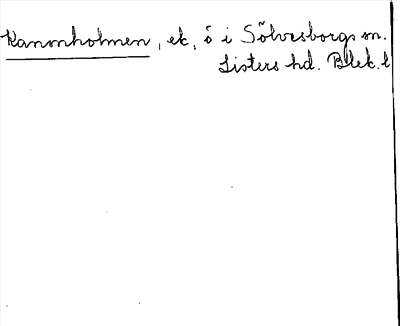 Kanonholmen, ek, ö i Sölvesborgs sn.
Listers hd. Blek. l